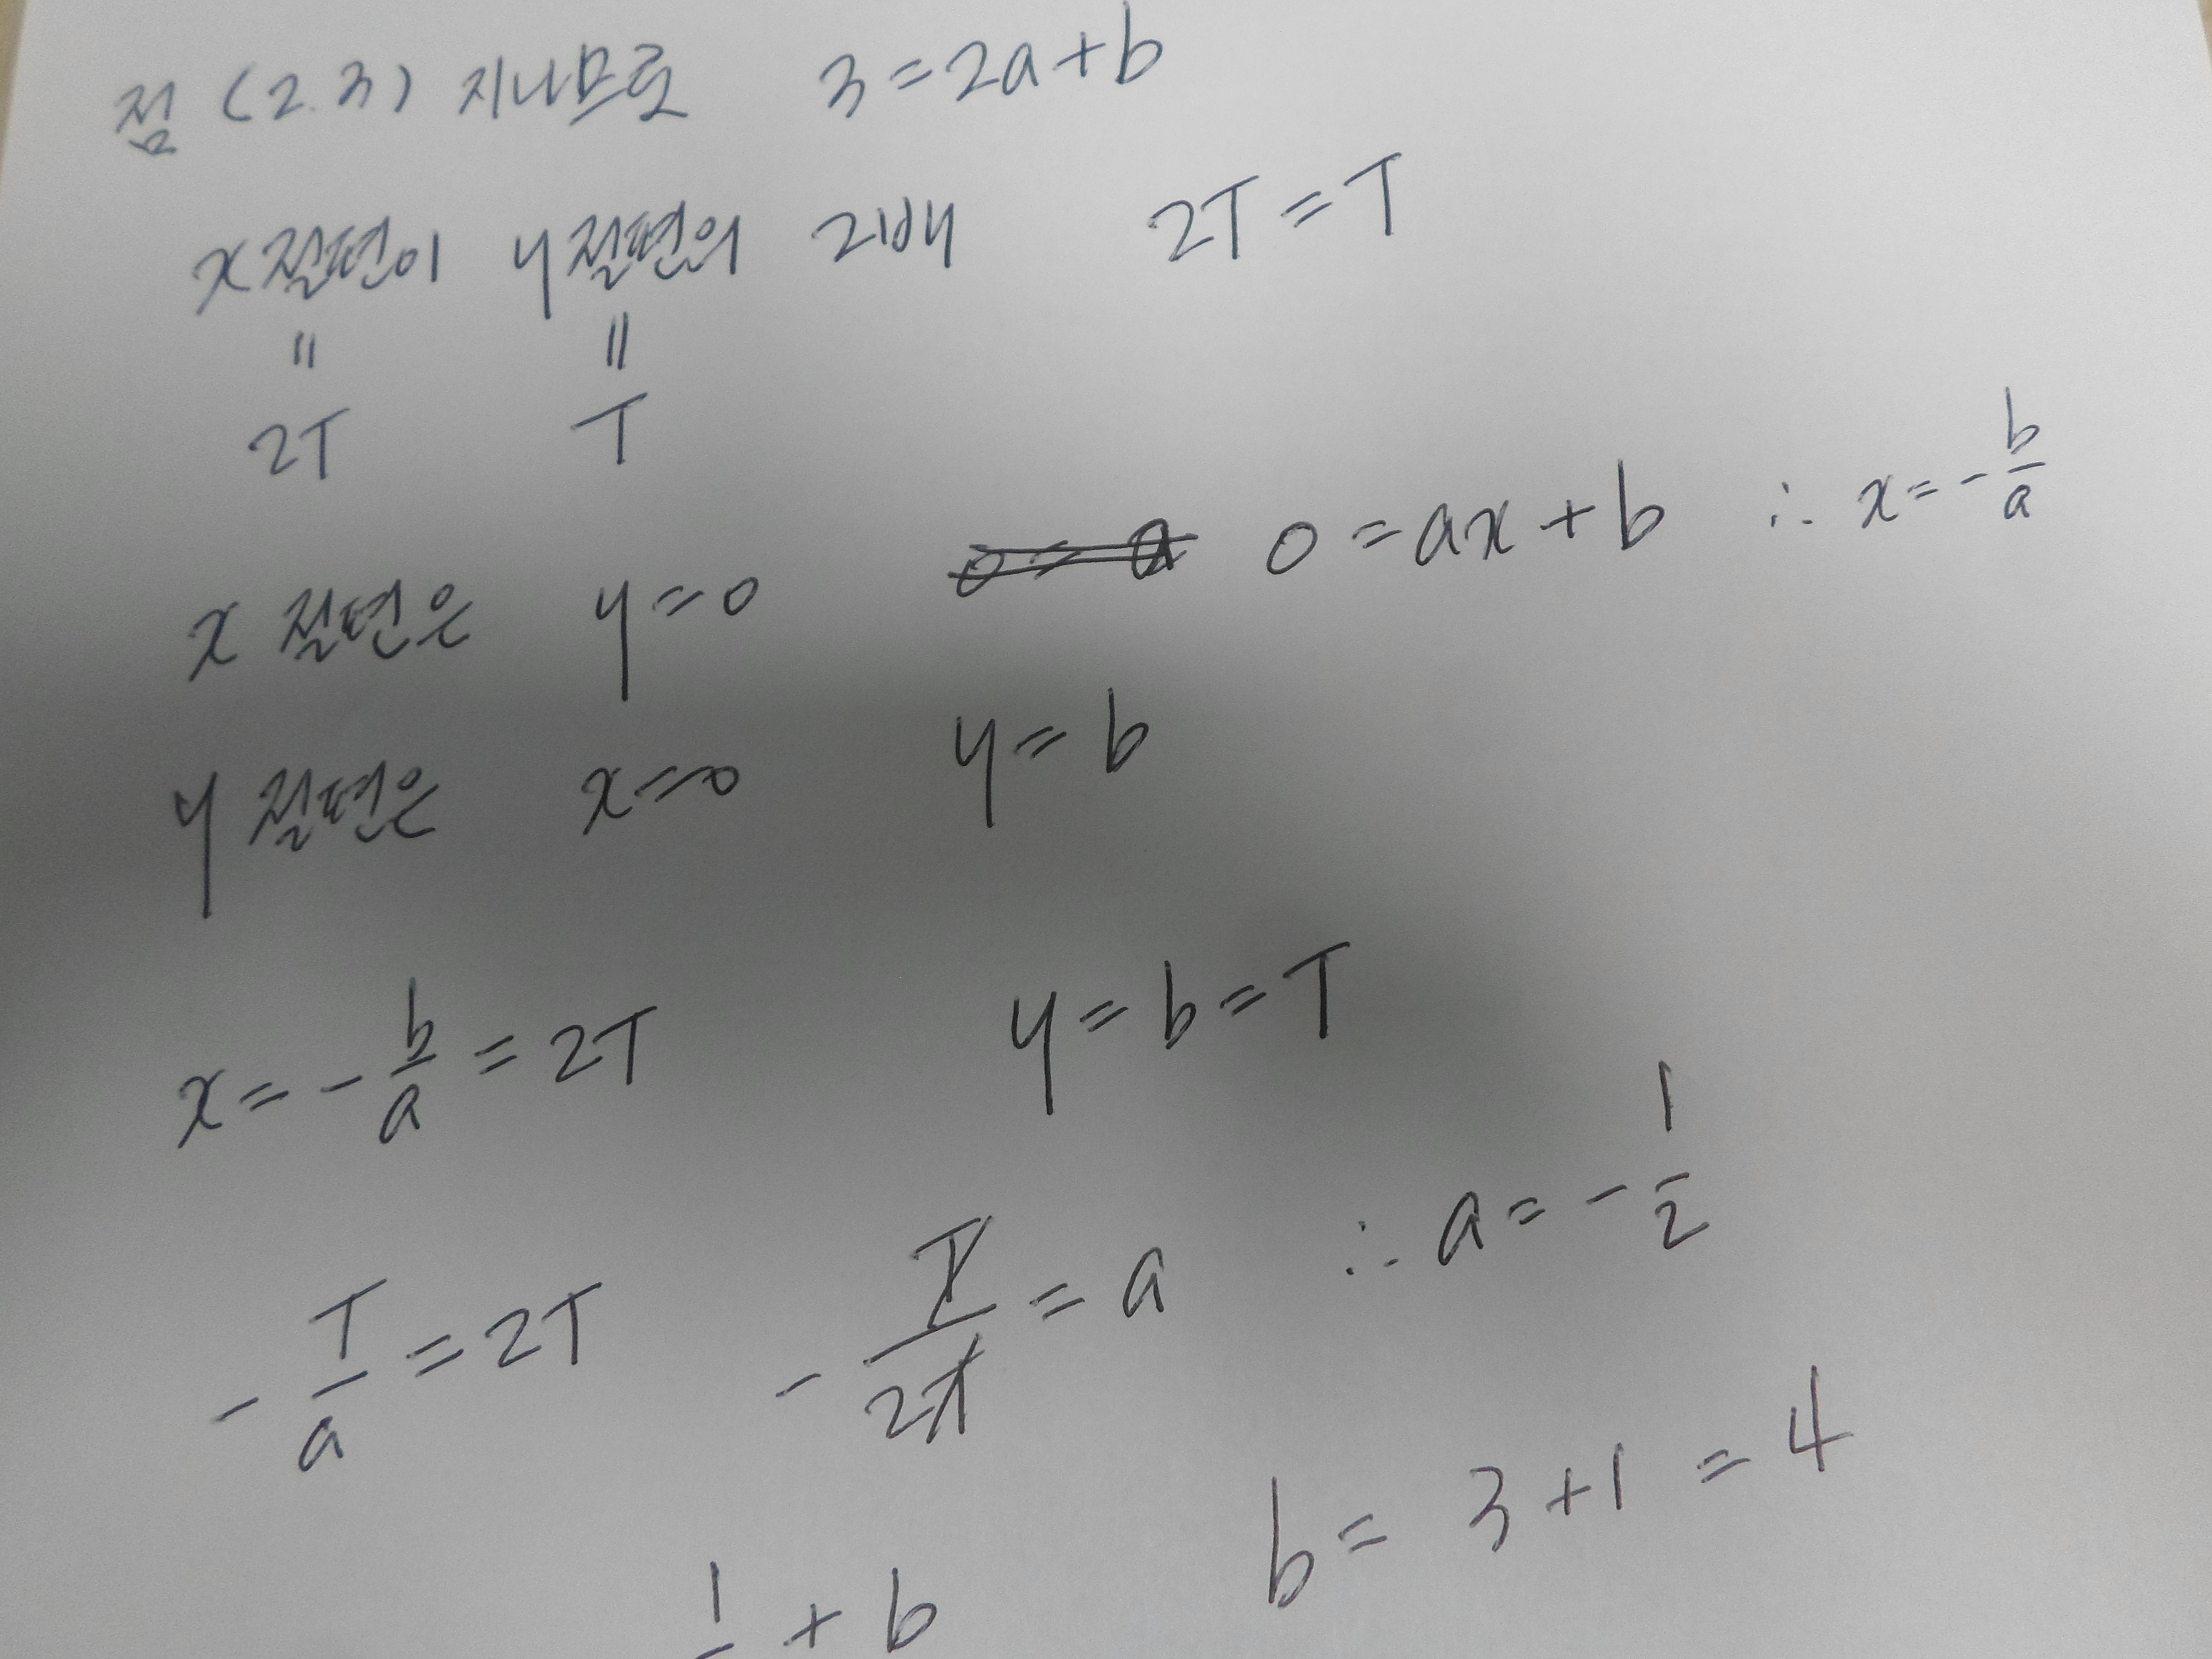 점 (2.3) 지나므로 3=2a+b
x절편이 y절편의 2배 2T=T
" "
2T T
x 절편은 y=0 0=ax+b ∴ x=-b/a
y 절편은 x=0 y=b
x=-b/a=2T y=b=T
-T/a=2T -T/2T=a ∴ a=-1/2
b= 3+1=4
1 + b